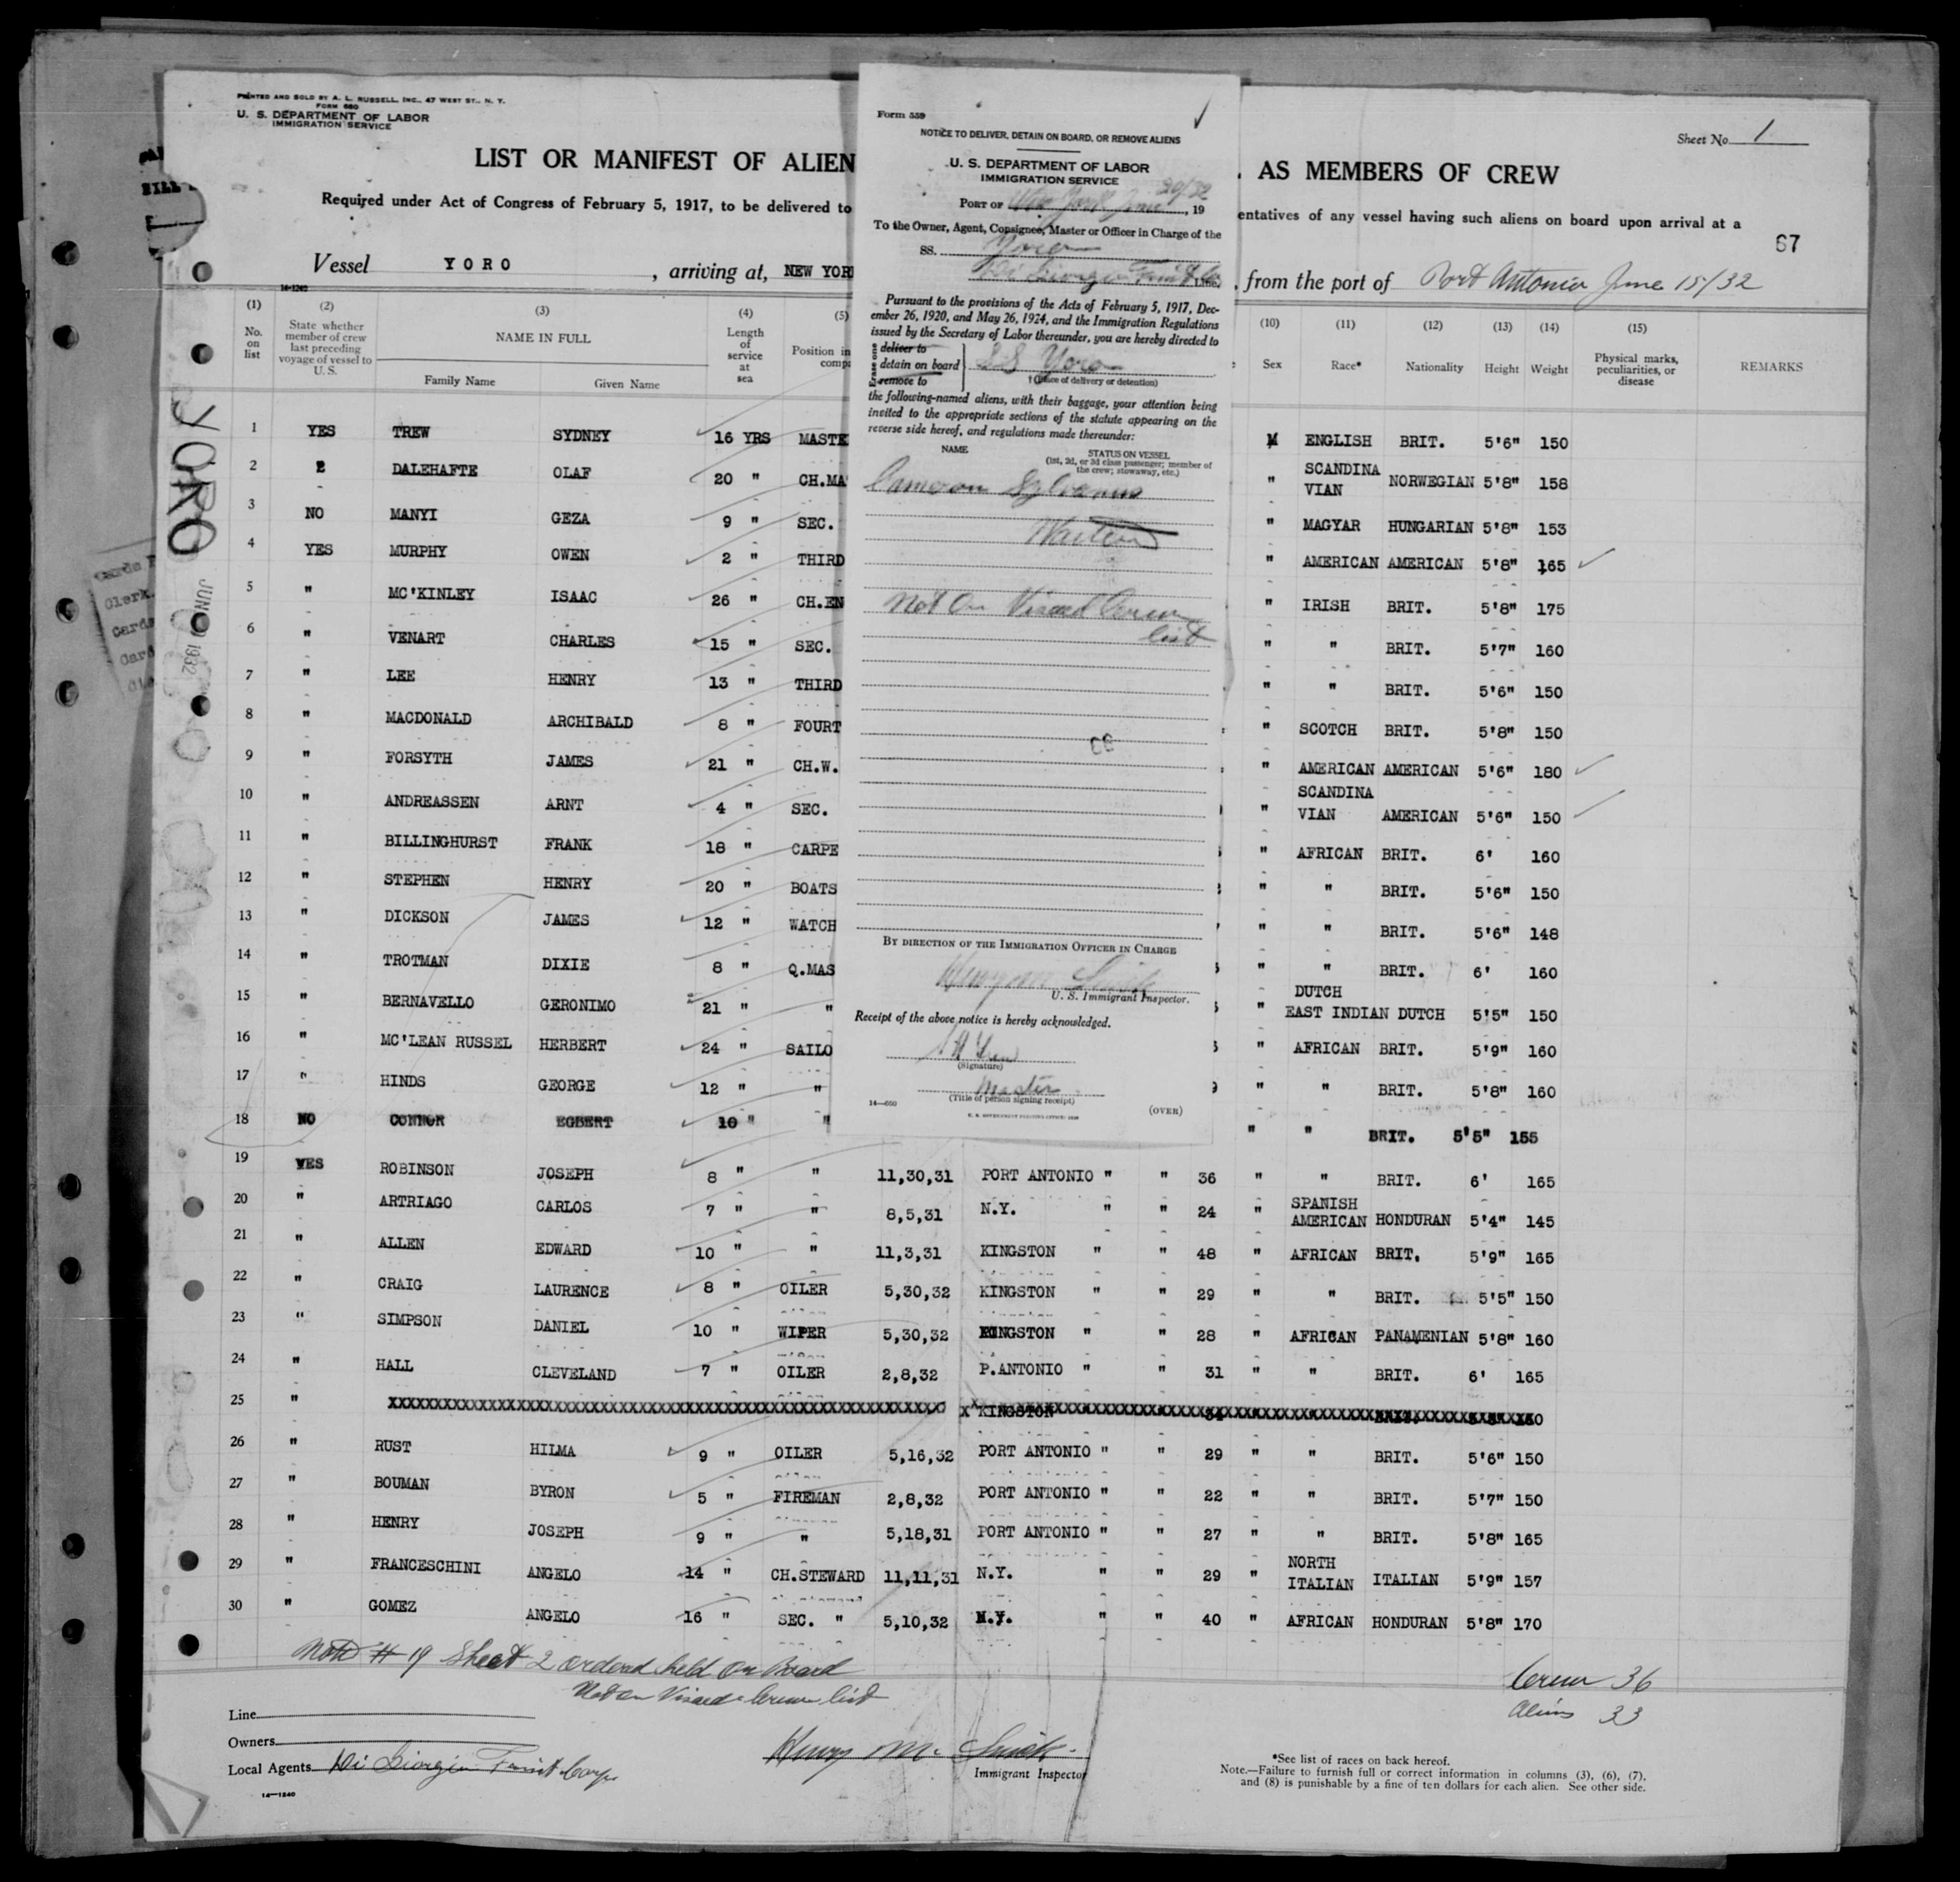 PRINTED AND SOLD BY A. L. RUSSELL, INC., 47 WEST ST., N. Y.
FORM 680
U. S. DEPARTMENT OF LABOR
IMMIGRATION SERVICE
Sheet No. 1
LIST OR MANIFEST OF ALIEN
AS MEMBERS OF CREW
Required under Act of Congress of February 5, 1917, to be delivered to
entatives of any vessel having such aliens on board upon arrival at a
67
Vessel YORO, arriving at, NEW YOR
from the port of Port Antonio June 15/32
14-1240
(1) No. on list
(2) State whether member of crew last preceding voyage of vessel to U. S.
(3) NAME IN FULL
Family Name Given Name
(4) Length of service at sea
(5) Position in comp
(10) Sex
(11) Race*
(12) Nationality
(13) Height
(14) Weight
(15) Physical marks, peculiarities, or disease
REMARKS
YORO
JUN 1932
1 YES TREW SYDNEY 16 YRS MASTE M ENGLISH BRIT. 5'6" 150
2 " DALEHAFTE OLAF 20 " CH.MA " SCANDINA VIAN NORWEGIAN 5'8" 158
3 NO MANYI GEZA 9 " SEC. " MAGYAR HUNGARIAN 5'8" 153
4 YES MURPHY OWEN 2 " THIRD " AMERICAN AMERICAN 5'8" 165
5 " MC'KINLEY ISAAC 26 " CH.EN " IRISH BRIT. 5'8" 175
6 " VENART CHARLES 15 " SEC. " " BRIT. 5'7" 160
7 " LEE HENRY 13 " THIRD " " BRIT. 5'6" 150
8 " MACDONALD ARCHIBALD 8 " FOURT " SCOTCH BRIT. 5'8" 150
9 " FORSYTH JAMES 21 " CH.W. " AMERICAN AMERICAN 5'6" 180
10 " ANDREASSEN ARNT 4 " SEC. " SCANDINA VIAN AMERICAN 5'6" 150
11 " BILLINGHURST FRANK 18 " CARPE " AFRICAN BRIT. 6' 160
12 " STEPHEN HENRY 20 " BOATS " " BRIT. 5'6" 150
13 " DICKSON JAMES 12 " WATCH " " BRIT. 5'6" 148
14 " TROTMAN DIXIE 8 " Q.MAS " " BRIT. 6' 160
15 " BERNAVELLO GERONIMO 21 " " " DUTCH EAST INDIAN DUTCH 5'5" 150
16 " MC'LEAN RUSSEL HERBERT 24 " SAILO " AFRICAN BRIT. 5'9" 160
17 " HINDS GEORGE 12 " " " " BRIT. 5'8" 160
18 NO CONNOR EGBERT 10 " " " " BRIT. 5'5" 155
19 YES ROBINSON JOSEPH 8 " " 11,30,31 PORT ANTONIO " " 36 " " BRIT. 6' 165
20 " ARTRIAGO CARLOS 7 " " 8,5,31 N.Y. " " 24 " SPANISH AMERICAN HONDURAN 5'4" 145
21 " ALLEN EDWARD 10 " " 11,3,31 KINGSTON " " 48 " AFRICAN BRIT. 5'9" 165
22 " CRAIG LAURENCE 8 " OILER 5,30,32 KINGSTON " " 29 " " BRIT. 5'5" 150
23 " SIMPSON DANIEL 10 " WIPER 5,30,32 KINGSTON " " 28 " AFRICAN PANAMENIAN 5'8" 160
24 " HALL CLEVELAND 7 " OILER 2,8,32 P.ANTONIO " " 31 " " BRIT. 6' 165
25 " KINGSTON
26 " RUST HILMA 9 " OILER 5,16,32 PORT ANTONIO " " 29 " " BRIT. 5'6" 150
27 " BOUMAN BYRON 5 " FIREMAN 2,8,32 PORT ANTONIO " " 22 " " BRIT. 5'7" 150
28 " HENRY JOSEPH 9 " " 5,18,31 PORT ANTONIO " " 27 " " BRIT. 5'8" 165
29 " FRANCESCHINI ANGELO 14 " CH.STEWARD 11,11,31 N.Y. " " 29 " NORTH ITALIAN ITALIAN 5'9" 157
30 " GOMEZ ANGELO 16 " SEC. " 5,10,32 N.Y. " " 40 " AFRICAN HONDURAN 5'8" 170
Note # 19 Sheet 2 ordered held on Board
Not on Visaed Crew list
Crew 36
Aliens 33
Line
Owners
Local Agents Di Giorgio Fruit Corp
Henry M.
Immigrant Inspector
14-1240
*See list of races on back hereof.
Note.—Failure to furnish full or correct information in columns (3), (6), (7),
and (8) is punishable by a fine of ten dollars for each alien. See other side.
Form 559
NOTICE TO DELIVER, DETAIN ON BOARD, OR REMOVE ALIENS
U. S. DEPARTMENT OF LABOR
IMMIGRATION SERVICE
PORT OF New York June 20/32, 19
To the Owner, Agent, Consignee, Master or Officer in Charge of the
SS. Yoro
Di Giorgio Fruit Co Line.
Pursuant to the provisions of the Acts of February 5, 1917, Dec-
ember 26, 1920, and May 26, 1924, and the Immigration Regulations
issued by the Secretary of Labor thereunder, you are hereby directed to
Erase one
deliver to
detain on board SS Yoro
remove to
† (Place of delivery or detention)
the following-named aliens, with their baggage, your attention being
invited to the appropriate sections of the statute appearing on the
reverse side hereof, and regulations made thereunder:
NAME
STATUS ON VESSEL
(1st, 2d, or 3d class passenger; member of
the crew; stowaway, etc.)
Cameron Sylvanus
Not On Visaed Crew
list
BY DIRECTION OF THE IMMIGRATION OFFICER IN CHARGE
U. S. Immigrant Inspector.
Receipt of the above notice is hereby acknowledged.
(Signature)
Master
(Title of person signing receipt)
(OVER)